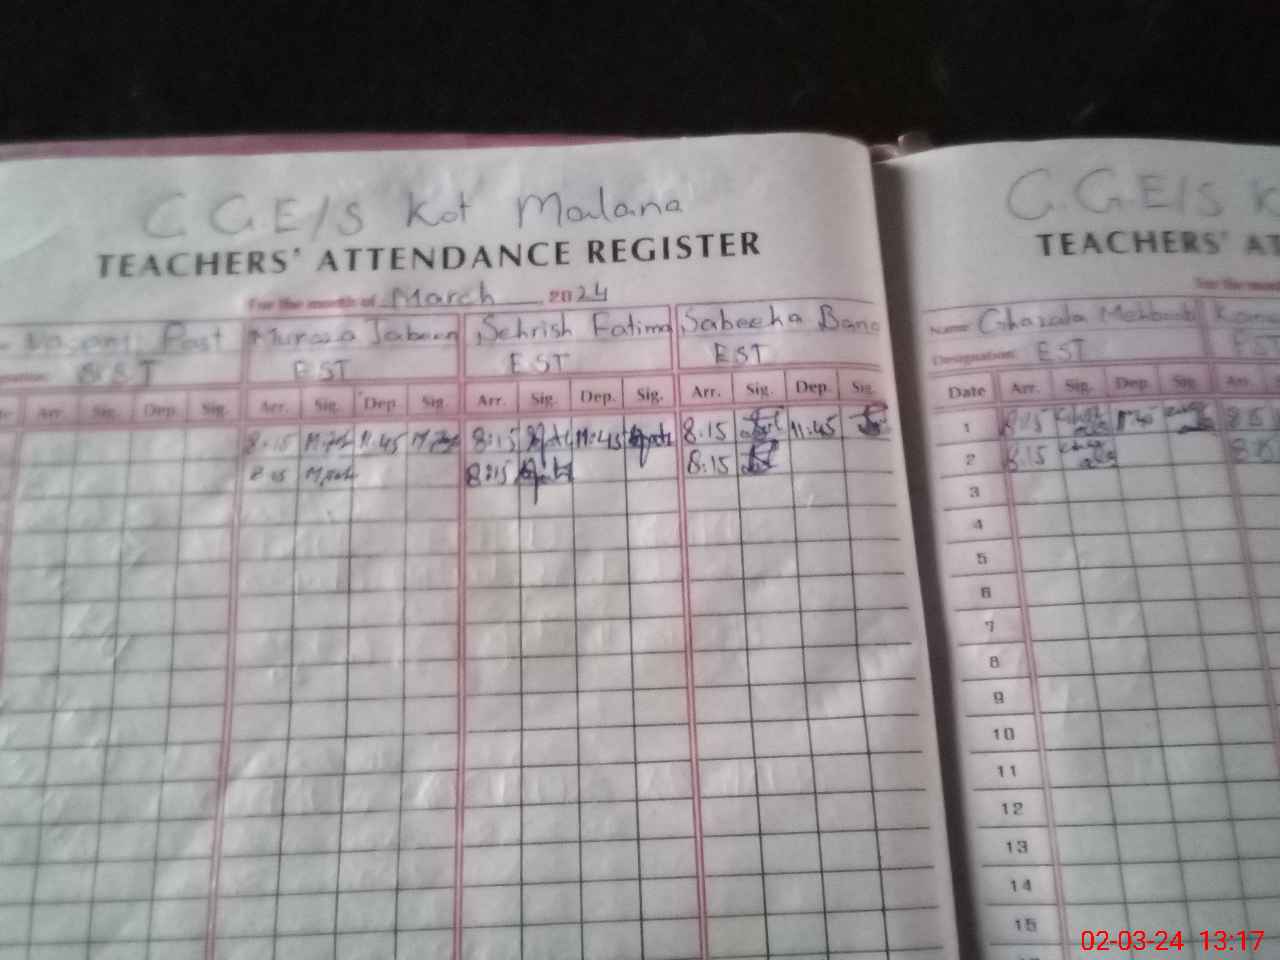 G.G.E/S Kot Malana
TEACHERS' ATTENDANCE REGISTER
For the month of March 2024
Vacant Post Jabeen Sehrish Fatima Sabeeha Bano
SST EST EST EST
Arr. Sig. Dep. Sig. Arr. Sig. Dep. Sig. Arr. Sig. Dep. Sig. Arr. Sig. Dep. Sig.
8:15 11:45 8:15 11:45 8:15 11:45
8:15 8:15 8:15
G.G.E/S K
TEACHERS' AT
For the mon
Name: Ghazala Mehboob
Designation: EST EST
Date Arr. Sig. Dep. Sig. Arr. Sig.
1 8:15 11:45 8:15
2 8:15 8:15
3
4
5
6
7
8
9
10
11
12
13
14
15
02-03-24 13:17